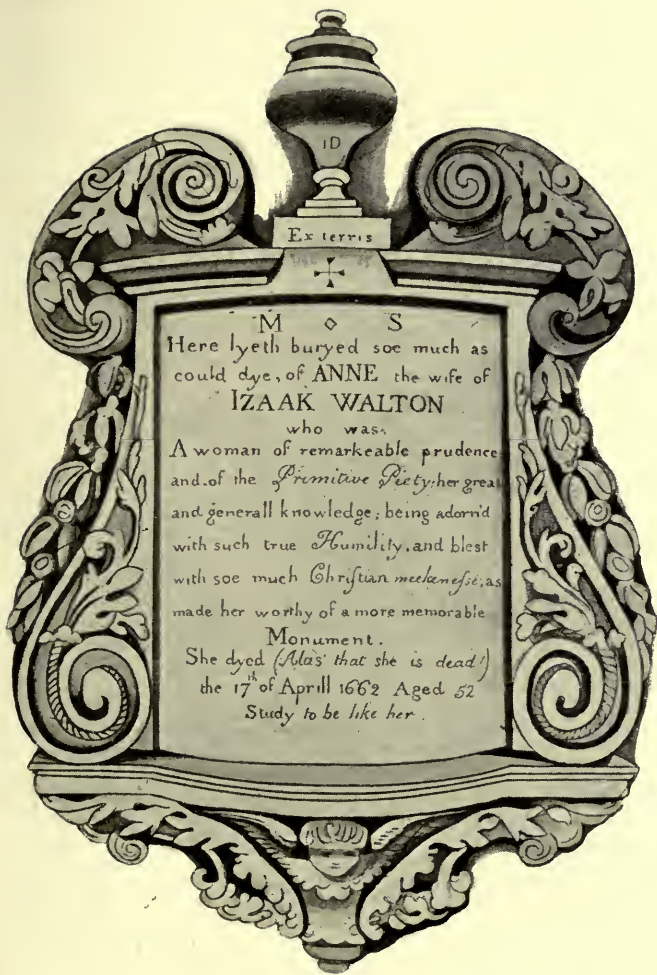 ID
Ex terris
M ◇ S
Here lyeth buryed soe much as
could dye, of ANNE the wife of
IZAAK WALTON
who was,
A woman of remarkeable prudence
and of the Primitive Piety; her great
and generall knowledge; being adorn'd
with such true Humility, and blest
with soe much Christian meeknesse, as
made her worthy of a more memorable
Monument.
She dyed (Alas that she is dead!)
the 17th of Aprill 1662 Aged 52
Study to be like her.